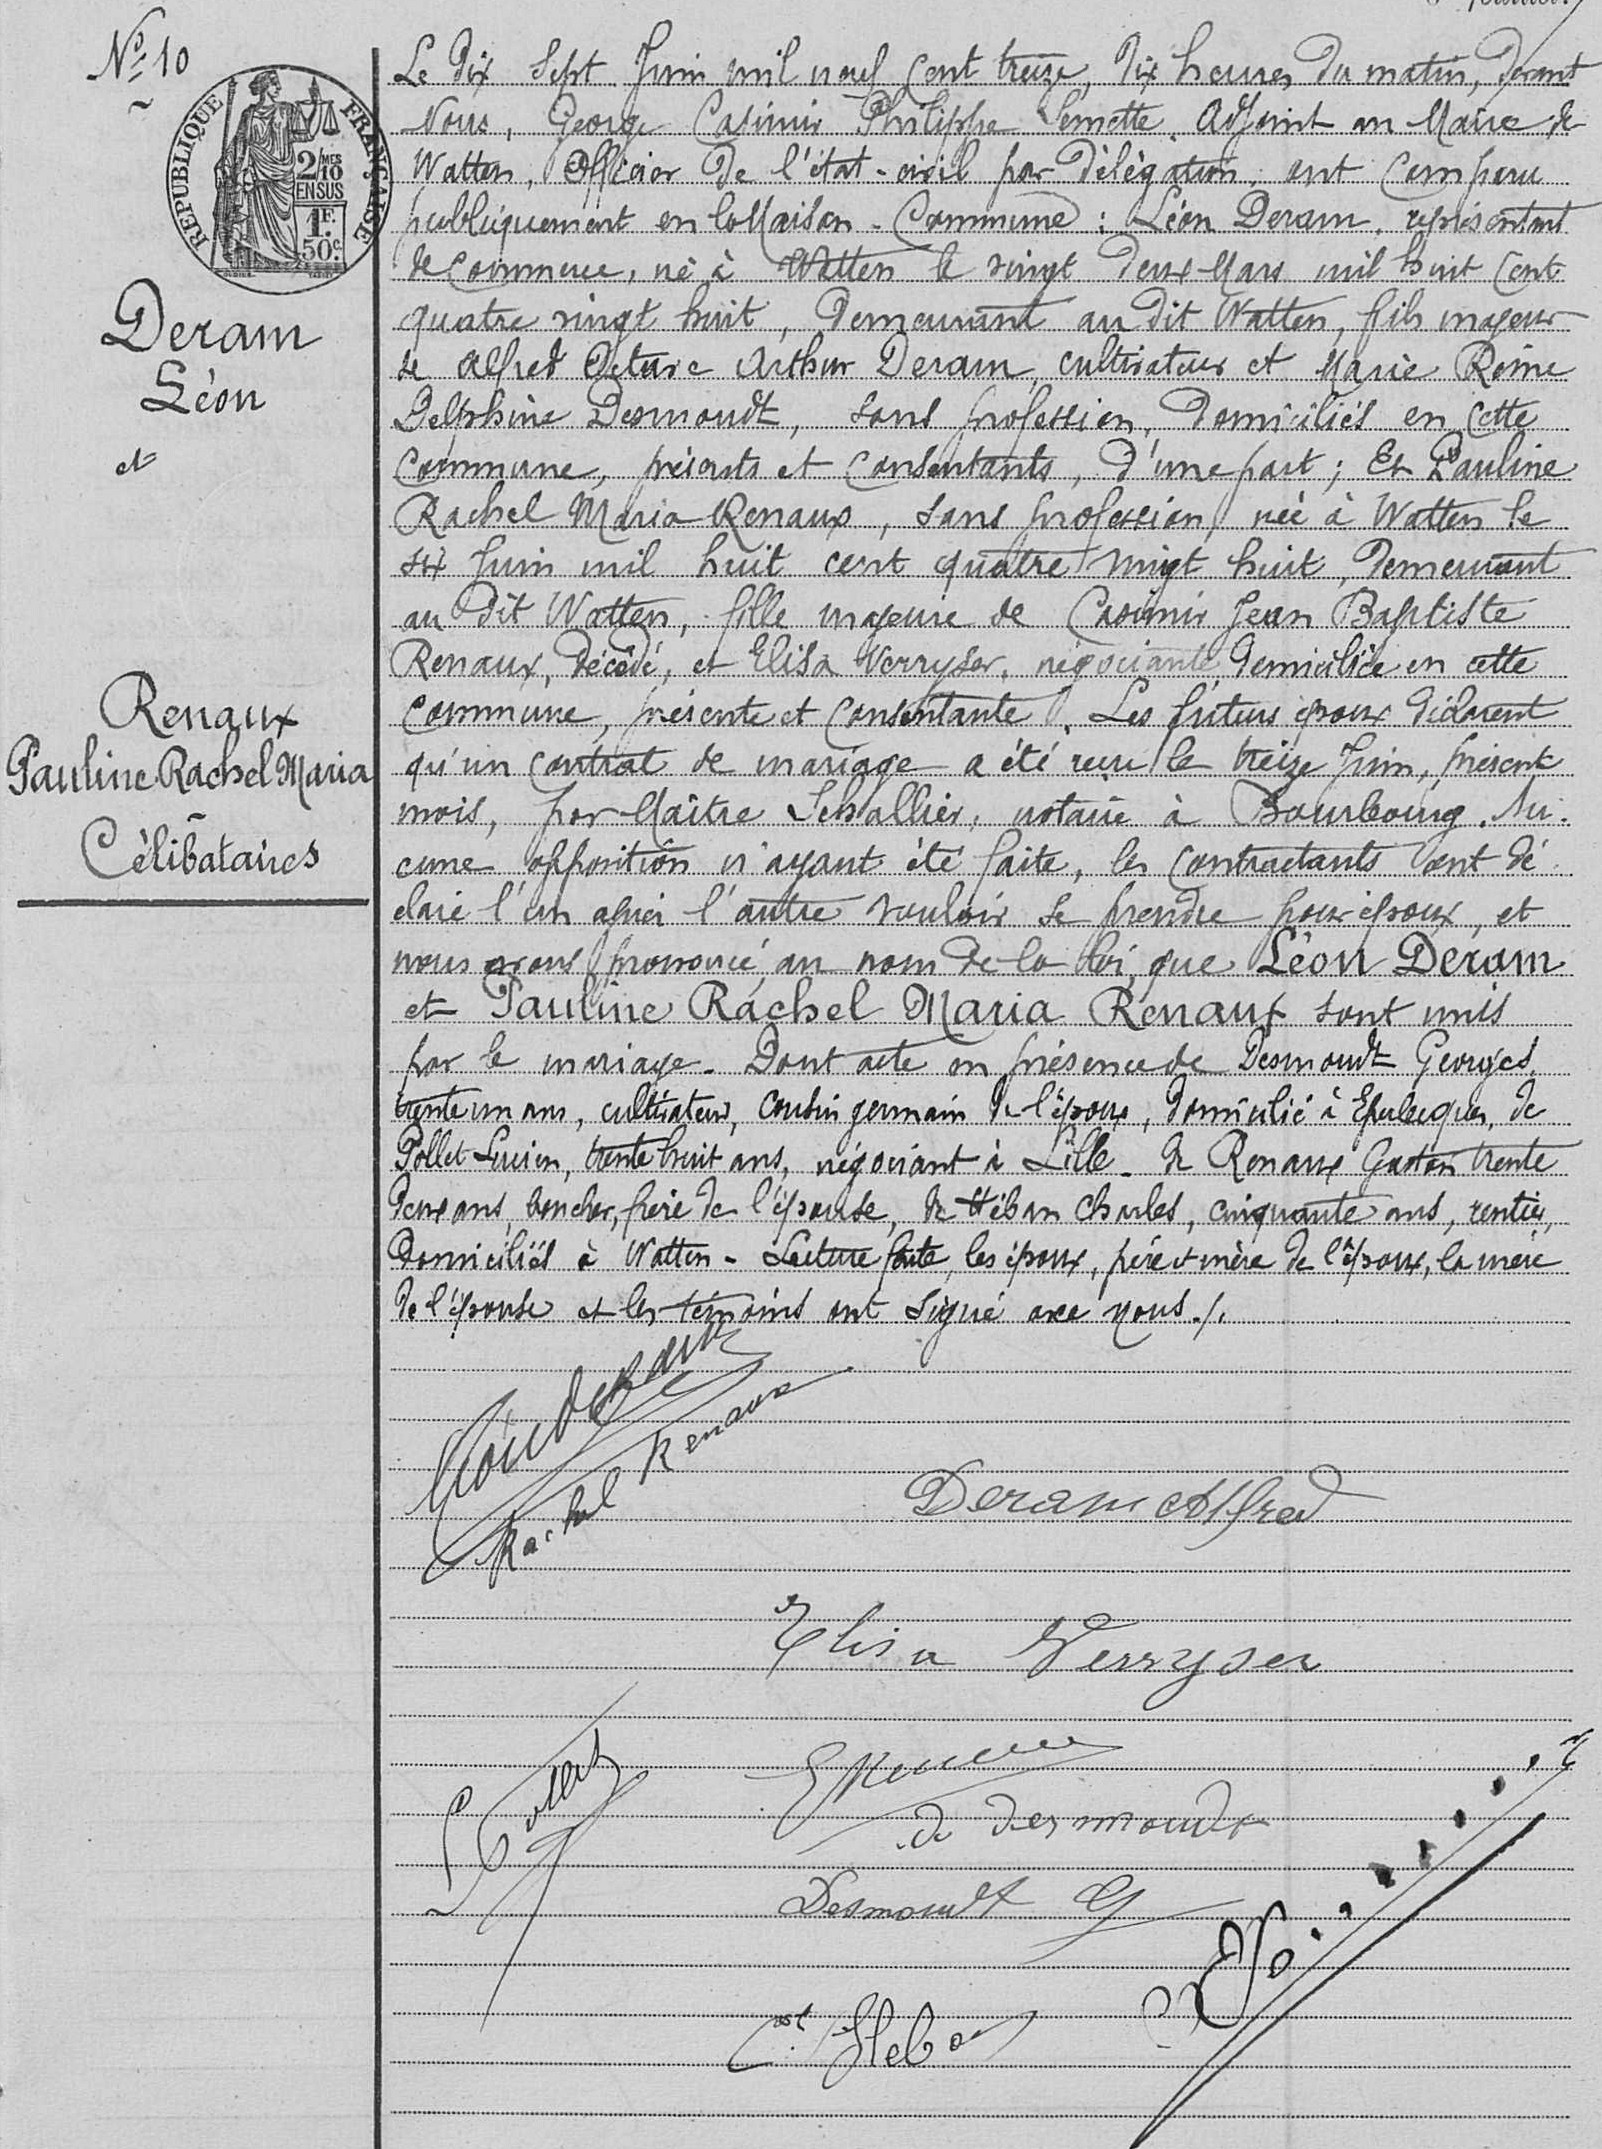 N° 10
REPUBLIQUE FRANÇAISE
2/10 MES
EN SUS
1F.
50c.
Deram
Léon
et
Renaux
Pauline Rachel Maria
Célibataires
Le dix sept Juin mil neuf cent treize, dix heures du matin, devant
Nous, George Casimir Philippe Semette, Adjoint au Maire de
Watten, Officier de l'état-civil par délégation, ont comparu
publiquement en la Maison-Commune : Léon Deram, représentant
de commerce, né à Watten le vingt deux Mars mil huit cent
quatre vingt huit, demeurant au dit Watten, fils majeur
de Alfred Octave Arthur Deram, cultivateur et Marie Reine
Delphine Desmoudt, sans profession, domiciliés en cette
commune, présents et consentants, d'une part ; Et Pauline
Rachel Maria Renaux, sans profession, née à Watten le
six Juin mil huit cent quatre vingt huit, demeurant
au dit Watten, fille majeure de Casimir Jean Baptiste
Renaux, décédé, et Elisa Verryser, négociante, domiciliée en cette
commune, présente et consentante. Les futurs époux déclarent
qu'un contrat de mariage a été reçu le treize Juin, présent
mois, par Maître Schallier, notaire à Bourbourg. Au-
cune opposition n'ayant été faite, les contractants ont dé
claré l'un après l'autre vouloir se prendre pour époux, et
nous avons prononcé, au nom de la loi, que Léon Deram
et Pauline Rachel Maria Renaux sont unis
par le mariage. Dont acte en présence de Desmoudt Georges,
trente un ans, cultivateur, cousin germain de l'époux, domicilié à Eperlecques, de
Pollet Lucien, trente huit ans, négociant à Lille. de Renaux Gaston trente
deux ans, boucher, frère de l'épouse, de Héban Charles, cinquante ans, rentier,
domiciliés à Watten. Lecture faite, les époux, père et mère de l'époux, la mère
de l'épouse et les témoins ont signé avec nous./.
Léon Deram
Rachel Renaux
Deram Alfred
Elisa Verryser
L Pollet
G Renaux
D Desmoudt
Desmoudt G